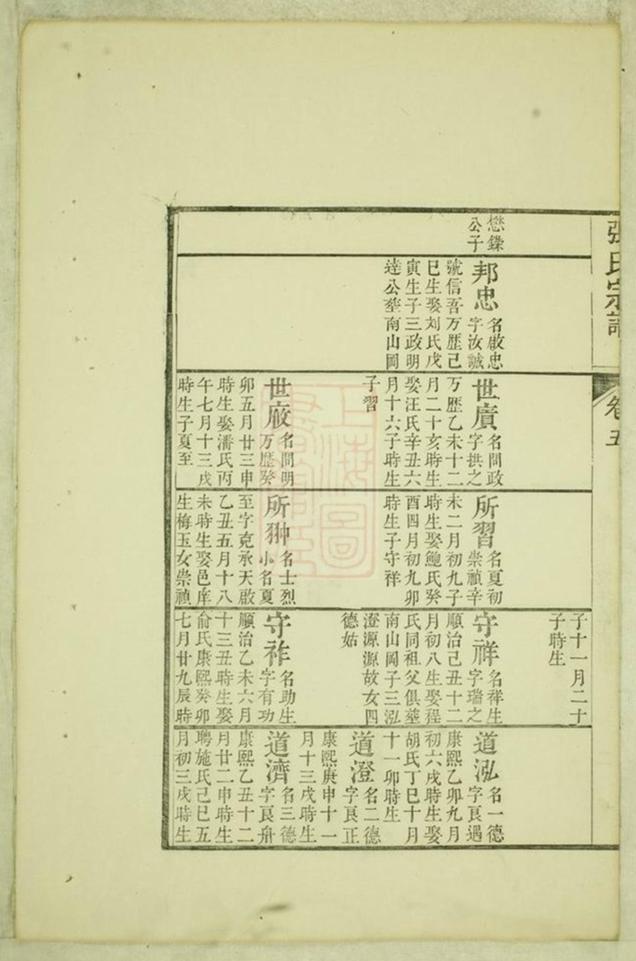 張氏宗譜
卷五
懋鏷
公子
邦忠
名啟忠
字汝誠
號信吾万歷己
巳生娶刘氏戊
寅生子三政明
達公塟南山岡
世廣
名問政
字拱之
万歷乙未十二
月二十亥時生
娶汪氏辛丑六
月十六子時生
子習
世廄
名問明
万歷癸
卯五月廿三申
時生娶潘氏丙
午七月十三戌
時生子夏至
所習
名夏初
崇禎辛
未二月初九子
時生娶鮑氏癸
酉四月初九卯
時生子守祥
所翀
名士烈
小名夏
至字克承天啟
乙丑五月十八
未時生娶邑庠
生梅玉女崇禎
子十一月二十
子時生
守祥
名祥生
字瑞之
順治己丑十二
月初八生娶程
氏同祖父俱塟
南山岡子三泓
澄源源故女四
德姑
守祚
名助生
字有功
順治乙未六月
十三丑時生娶
俞氏康熙癸卯
七月廿九辰時
道泓
名一德
字艮遇
康熙乙卯九月
初六戌時生娶
胡氏丁巳十月
十一卯時生
道澄
名二德
字艮正
康熙庚申十一
月十三戌時生
道濟
名三德
字艮舟
康熙乙丑十二
月廿二申時生
聘施氏己巳五
月初三戌時生